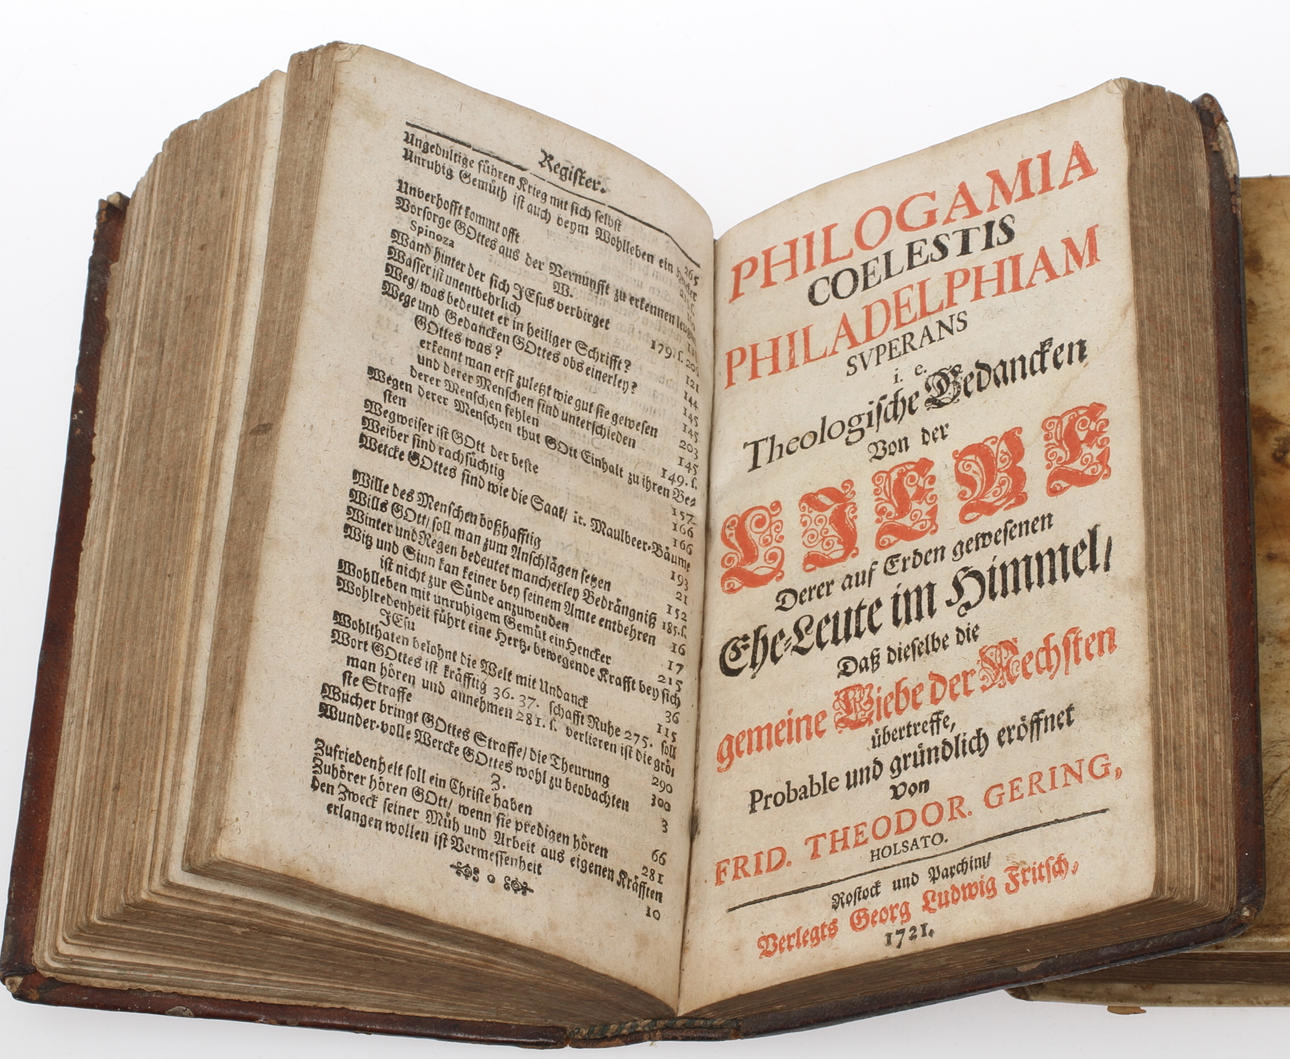 Register.
Ungedultige führen Krieg mit sich selbst 265
Unruhig Gemüth ist auch beym Wohlleben ein
Unverhofft kommt offt
Vorsorge GOttes aus der Vernunfft zu erkennen
Spinoza
W.
Wand hinter der sich JEsus verbirget 179. s. 201
Wasser ist unentbehrlich
Weg/ was bedeutet er in heiliger Schrifft? 121
Wege und Gedancken GOttes obs einerley? 144
GOttes was? 145
erkennt man erst zuletzt wie gut sie gewesen 145
und derer Menschen sind unterschieden 203
derer Menschen fehlen 145
Wegen derer Menschen thut GOtt Einhalt zu ihren Be-
sten 149. s.
Wegweiser ist GOtt der beste 157
Weiber sind rachsüchtig 166
Wercke GOttes sind wie die Saat/ it. Maulbeer-Bäume
166
Wille des Menschen boßhafftig 193
Wills GOtt/ soll man zum Anschlägen setzen 21
Winter und Regen bedeutet mancherley Bedrängniß 152
Witz und Sinn kan keiner bey seinem Amte entbehren 185. s.
ist nicht zur Sünde anzuwenden 16
Wohlleben mit unruhigem Gemüt ein Hencker 17
Wohlredenheit führt eine Hertz-bewegende Krafft bey sich
JEsu 215
Wohlthaten belohnt die Welt mit Undanck 36
Wort GOttes ist kräfftig 36. 37. schafft Ruhe 275. soll
man hören und annehmen 281. s. verlieren ist die grö-
ste Straffe 115
Wucher bringt GOttes Straffe/ die Theurung 290
Wunder-volle Wercke GOttes wohl zu beobachten 300
Z.
Zufriedenheit soll ein Christe haben 3
Zuhörer hören GOtt/ wenn sie predigen hören 66
Den Zweck seiner Müh und Arbeit aus eigenen Kräfften 281
erlangen wollen ist Vermessenheit 10
PHILOGAMIA
COELESTIS
PHILADELPHIAM
SVPERANS
i. e.
Theologische Gedancken
Von der
LIEBE
Derer auf Erden gewesenen
Ehe-Leute im Himmel/
Daß dieselbe die
gemeine Liebe der Nechsten
übertreffe,
Probable und gründlich eröffnet
von
FRID. THEODOR. GERING,
HOLSATO.
Rostock und Parchim/
Verlegts Georg Ludwig Fritsch,
1721.